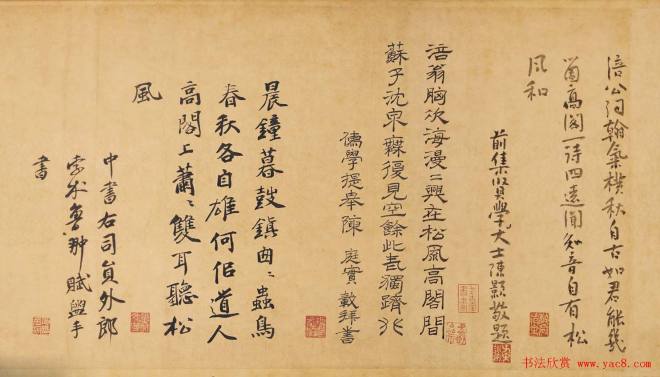 涪公詞翰氣橫秋自古如君能幾
留高閣一詩四遠聞知音自有松
風和
前集賢學士陳顥敬題
涪翁胸次海漫二興在松風高閣間
蘇子沈泉無復見空餘此卷獨躋
儒學提舉陳庭實載拜書
晨鐘暮鼓鎮函二蟲鳥
春秋各自雄何侶道人
高閣上蕭二雙耳聽松
風
中書右司員外郎
索朮魯翀賦盥手
書
书法欣赏
www.yac8.com